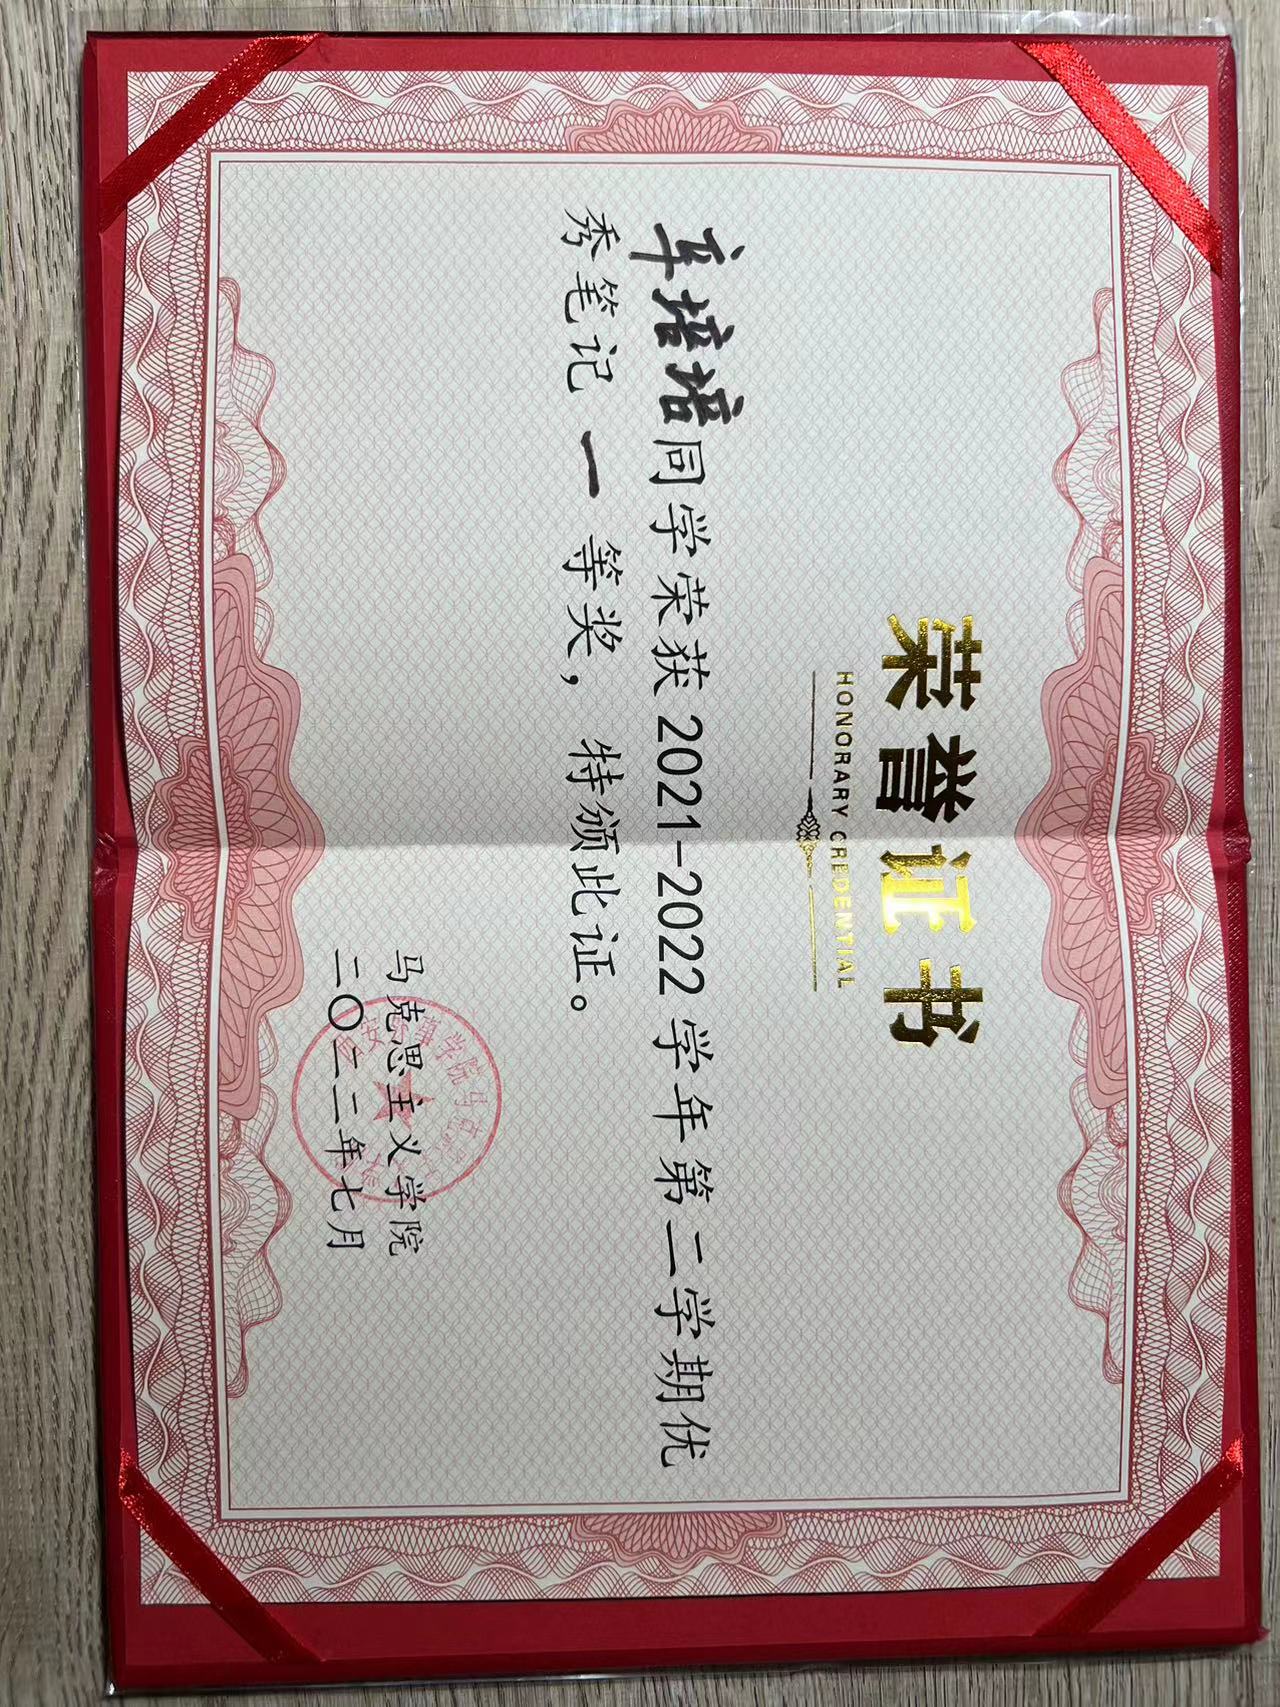 荣誉证书
HONORARY CREDENTIAL
车培培同学荣获2021-2022学年第二学期优
秀笔记一等奖，特颁此证。
马克思主义学院
二〇二二年七月